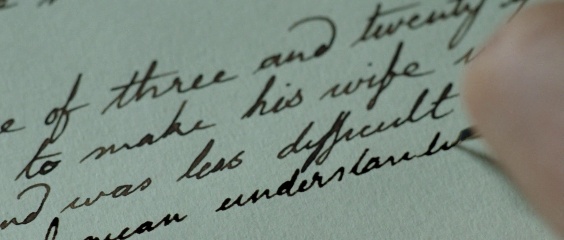 of three and twenty
to make his wife
was less difficult
mean understand